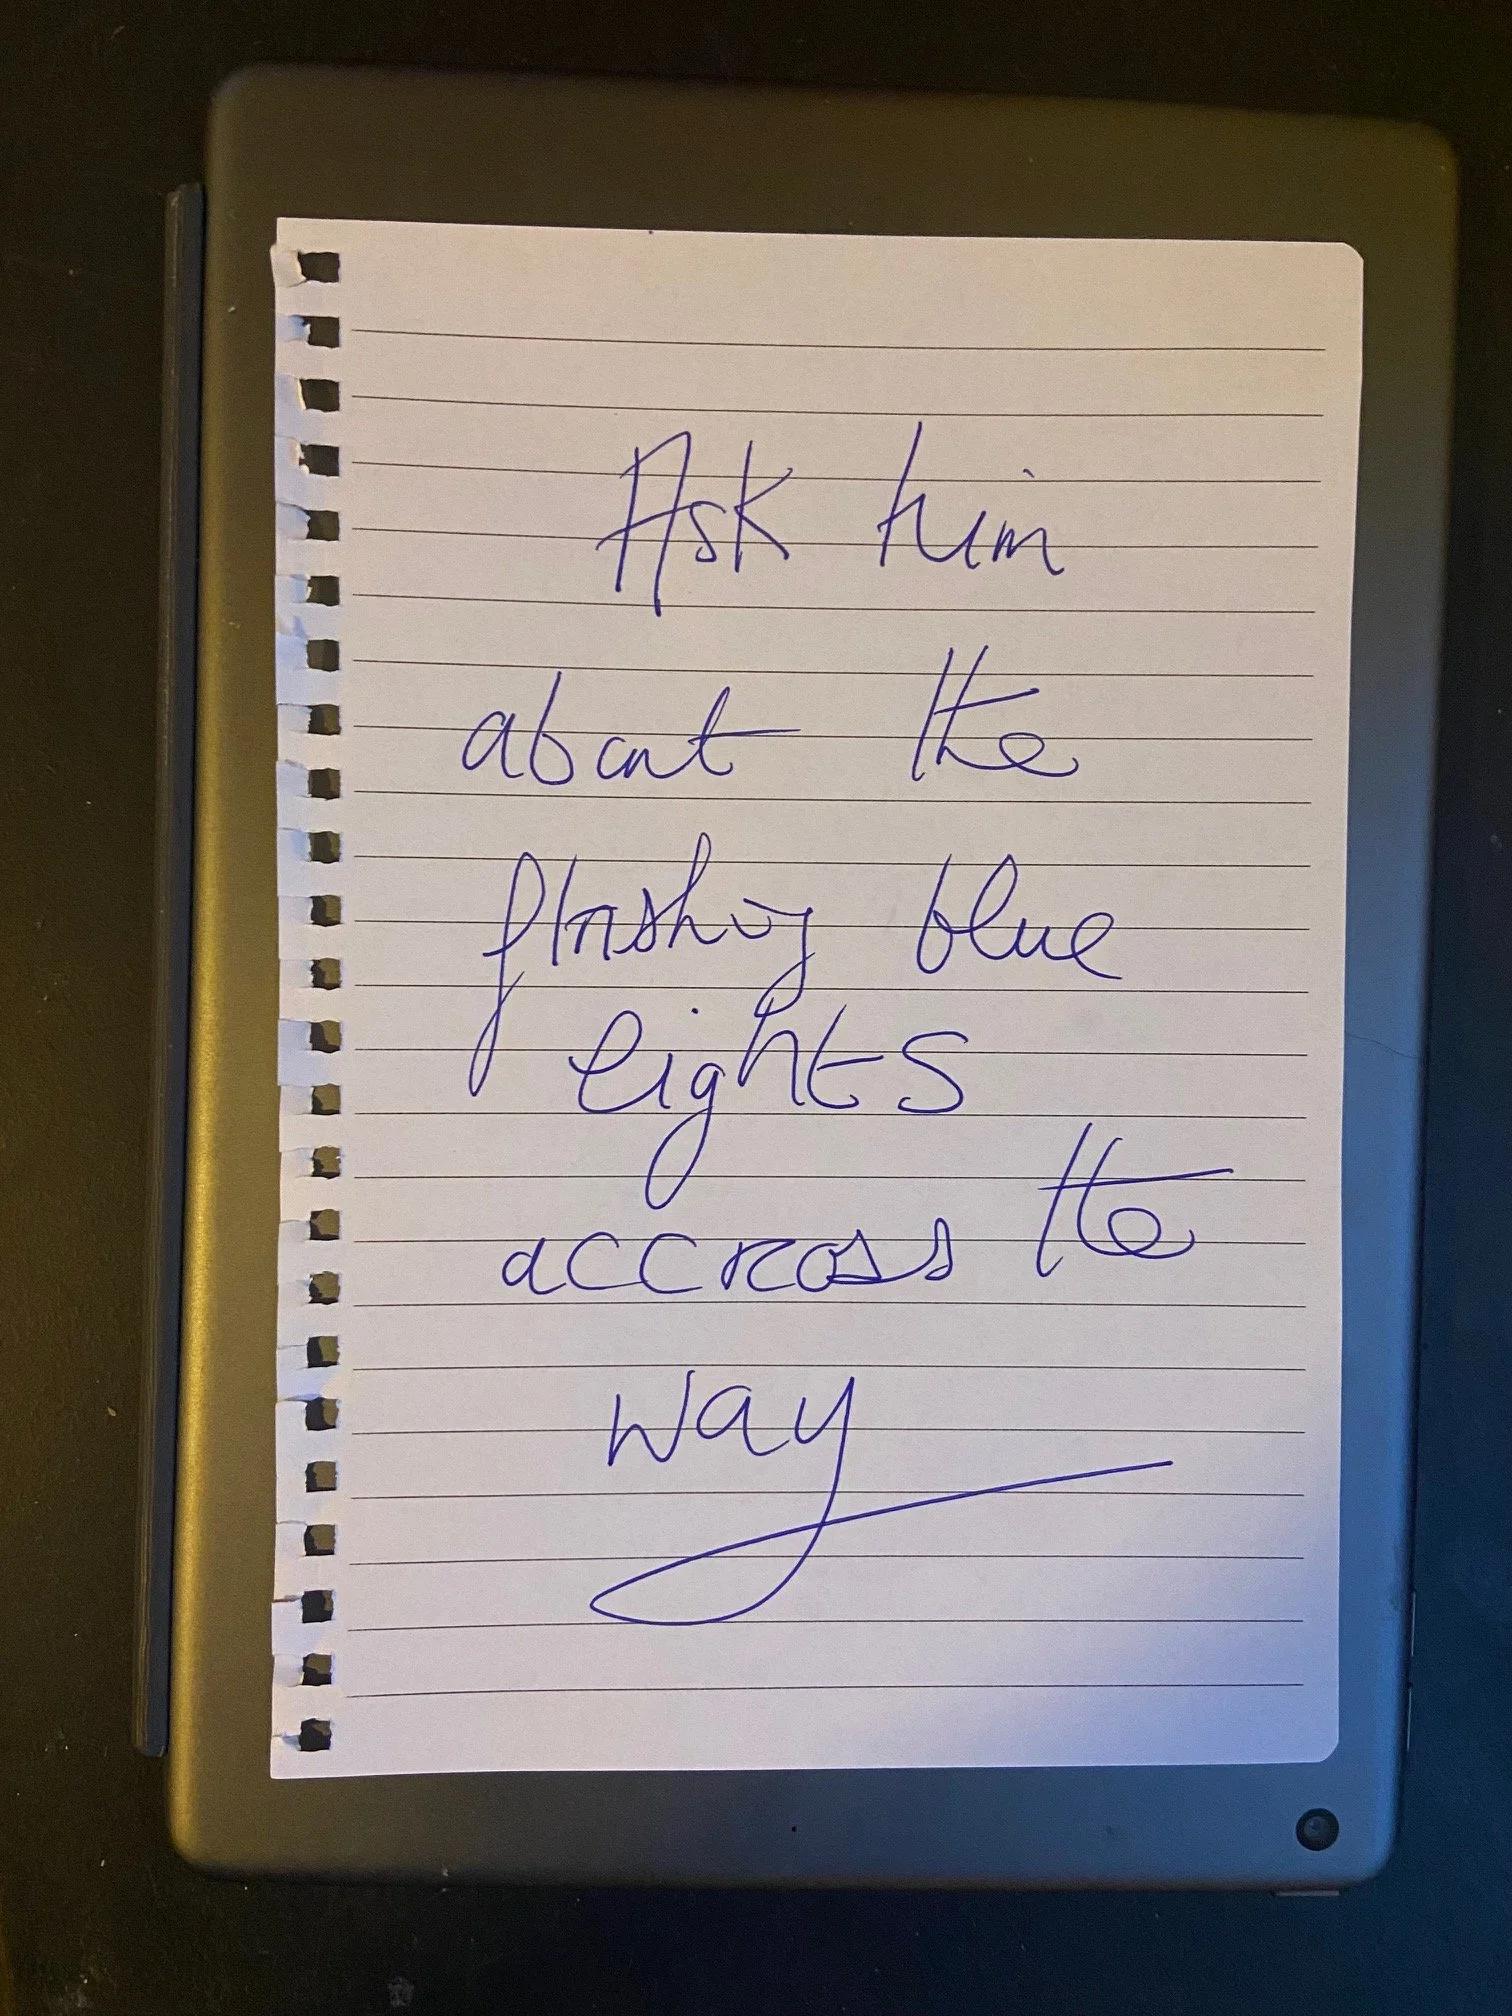 Ask him
about the
flashing blue
lights
accross the
way